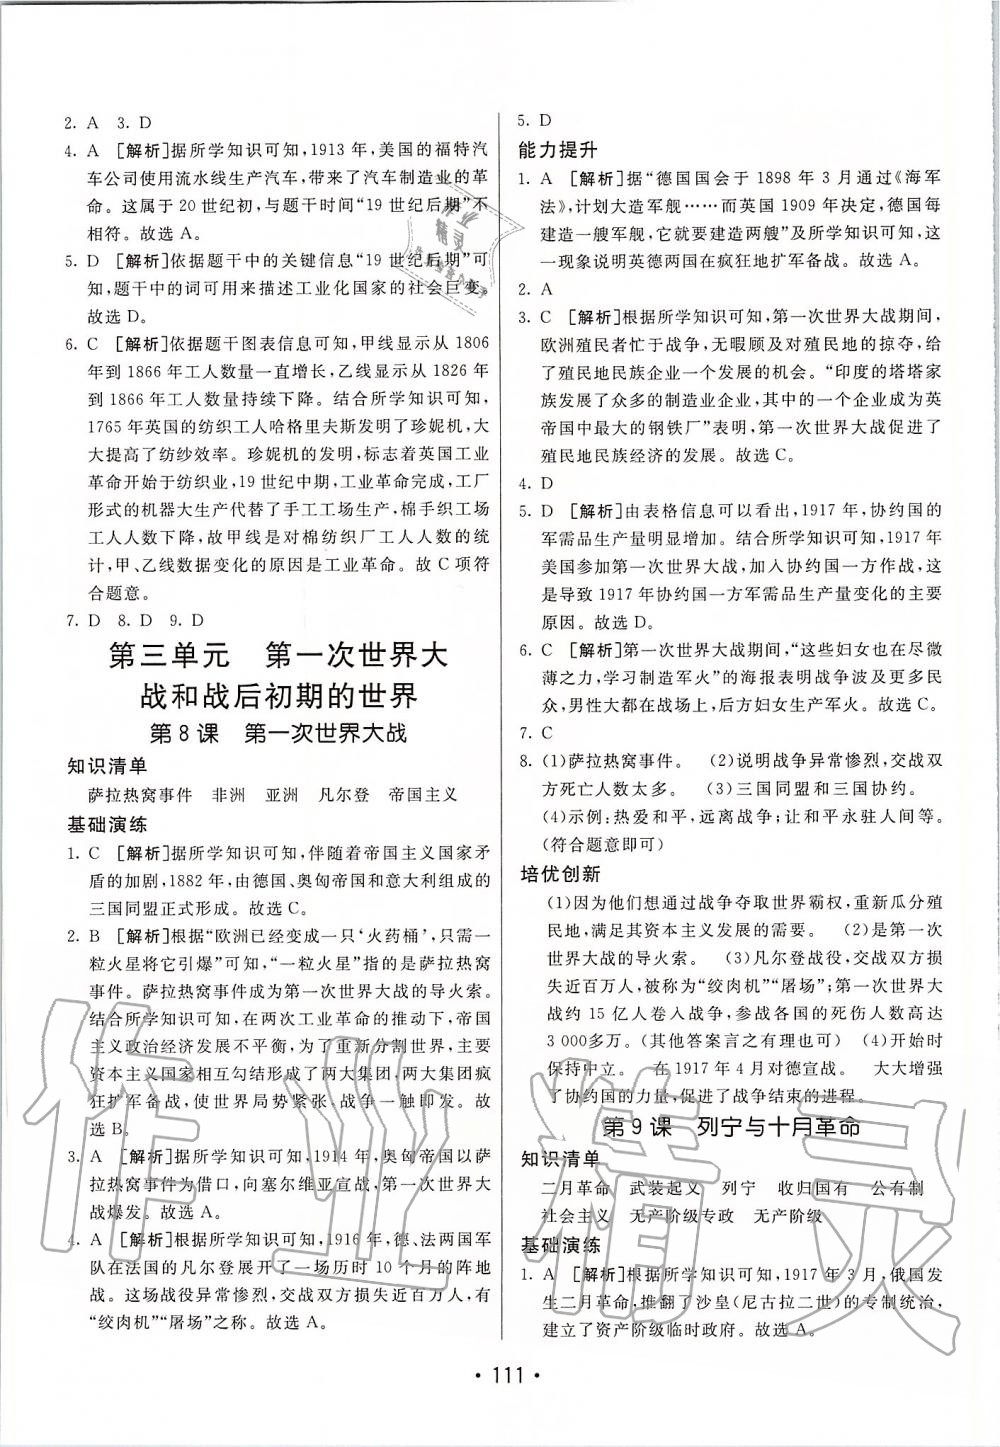 2. A　3. D
4. A　[解析]据所学知识可知，1913 年，美国的福特汽
车公司使用流水线生产汽车，带来了汽车制造业的革
命。这属于 20 世纪初，与题干时间“19 世纪后期”不
相符。故选 A。
5. D　[解析]依据题干中的关键信息“19 世纪后期”可
知，题干中的词可用来描述工业化国家的社会巨变。
故选 D。
6. C　[解析]依据题干图表信息可知，甲线显示从 1806
年到 1866 年工人数量一直增长，乙线显示从 1826 年
到 1866 年工人数量持续下降。结合所学知识可知，
1765 年英国的纺织工人哈格里夫斯发明了珍妮机，大
大提高了纺纱效率。珍妮机的发明，标志着英国工业
革命开始于纺织业，19 世纪中期，工业革命完成，工厂
形式的机器大生产代替了手工工场生产，棉手织工场
工人人数下降，故甲线是对棉纺织厂工人人数的统
计，甲、乙线数据变化的原因是工业革命。故 C 项符
合题意。
7. D　8. D　9. D
第三单元　第一次世界大
战和战后初期的世界
第 8 课　第一次世界大战
知识清单
萨拉热窝事件　非洲　亚洲　凡尔登　帝国主义
基础演练
1. C　[解析]据所学知识可知，伴随着帝国主义国家矛
盾的加剧，1882 年，由德国、奥匈帝国和意大利组成的
三国同盟正式形成。故选 C。
2. B　[解析]根据“欧洲已经变成一只‘火药桶’，只需一
粒火星将它引爆”可知，“一粒火星”指的是萨拉热窝
事件。萨拉热窝事件成为第一次世界大战的导火索。
结合所学知识可知，在两次工业革命的推动下，资本
主义政治经济发展不平衡，为了重新分割世界，主要
资本主义国家相互勾结形成了两大集团，两大集团疯
狂扩军备战，使世界局势紧张，战争一触即发。故
选 B。
3. A　[解析]据所学知识可知，1914 年，奥匈帝国以萨
拉热窝事件为借口，向塞尔维亚宣战，第一次世界大
战爆发。故选 A。
4. A　[解析]据所学知识可知，1916 年，德、法两国军
队在法国的凡尔登展开了一场历时 10 个月的阵地
战。这场战役异常惨烈，交战双方损失近百万人，有
“绞肉机”“屠场”之称。故选 A。
5. D
能力提升
1. A　[解析]据“德国国会于 1898 年 3 月通过《海军
法》，计划大造军舰……而英国 1909 年决定，德国每
建造一艘军舰，它就要建造两艘”及所学知识可知，这
一现象说明英德两国在疯狂地扩军备战。故选 A。
2. A
3. C　[解析]根据所学知识可知，第一次世界大战期间，
欧洲殖民者忙于战争，无暇顾及对殖民地的掠夺，给
了殖民地民族企业一个发展的机会。“印度的塔塔家
族发展了众多的制造业企业，其中的一个企业成为英
帝国中最大的钢铁厂”表明，第一次世界大战促进了
殖民地民族经济的发展。故选 C。
4. D
5. D　[解析]由表格信息可以看出，1917 年，协约国的
军需品生产量明显增加。结合所学知识可知，1917 年
美国参加第一次世界大战，加入协约国一方作战，这
是导致 1917 年协约国一方军需品生产量变化的主要
原因。故选 D。
6. C　[解析]第一次世界大战期间，“这些妇女也在尽微
薄之力，学习制造军火”的海报表明战争波及更多民
众，男性大都在战场上，后方妇女生产军火。故选 C。
7. C
8. (1)萨拉热窝事件。　(2)说明战争异常惨烈，交战双
方死亡人数太多。　(3)三国同盟和三国协约。
(4)示例：热爱和平，远离战争；让和平永驻人间等。
(符合题意即可)
培优创新
(1)因为他们想通过战争夺取世界霸权，重新瓜分殖
民地，满足其资本主义发展的需要。　(2)是第一次
世界大战的导火索。　(3)凡尔登战役，交战双方损
失近百万人，被称为“绞肉机”“屠场”；第一次世界大
战约 15 亿人卷入战争，参战各国的死伤人数高达
3 000多万。(其他答案言之有理即可)　(4)开始时
保持中立。　在 1917 年 4 月对德宣战。　大大增强
了协约国的力量，促进了战争结束的进程。
第 9 课　列宁与十月革命
知识清单
二月革命　武装起义　列宁　收归国有　公有制
社会主义　无产阶级专政　无产阶级
基础演练
1. A　[解析]根据所学知识可知，1917 年 3 月，俄国发
生二月革命，推翻了沙皇(尼古拉二世)的专制统治，
建立了资产阶级临时政府。故选 A。
· 111 ·
作业精灵